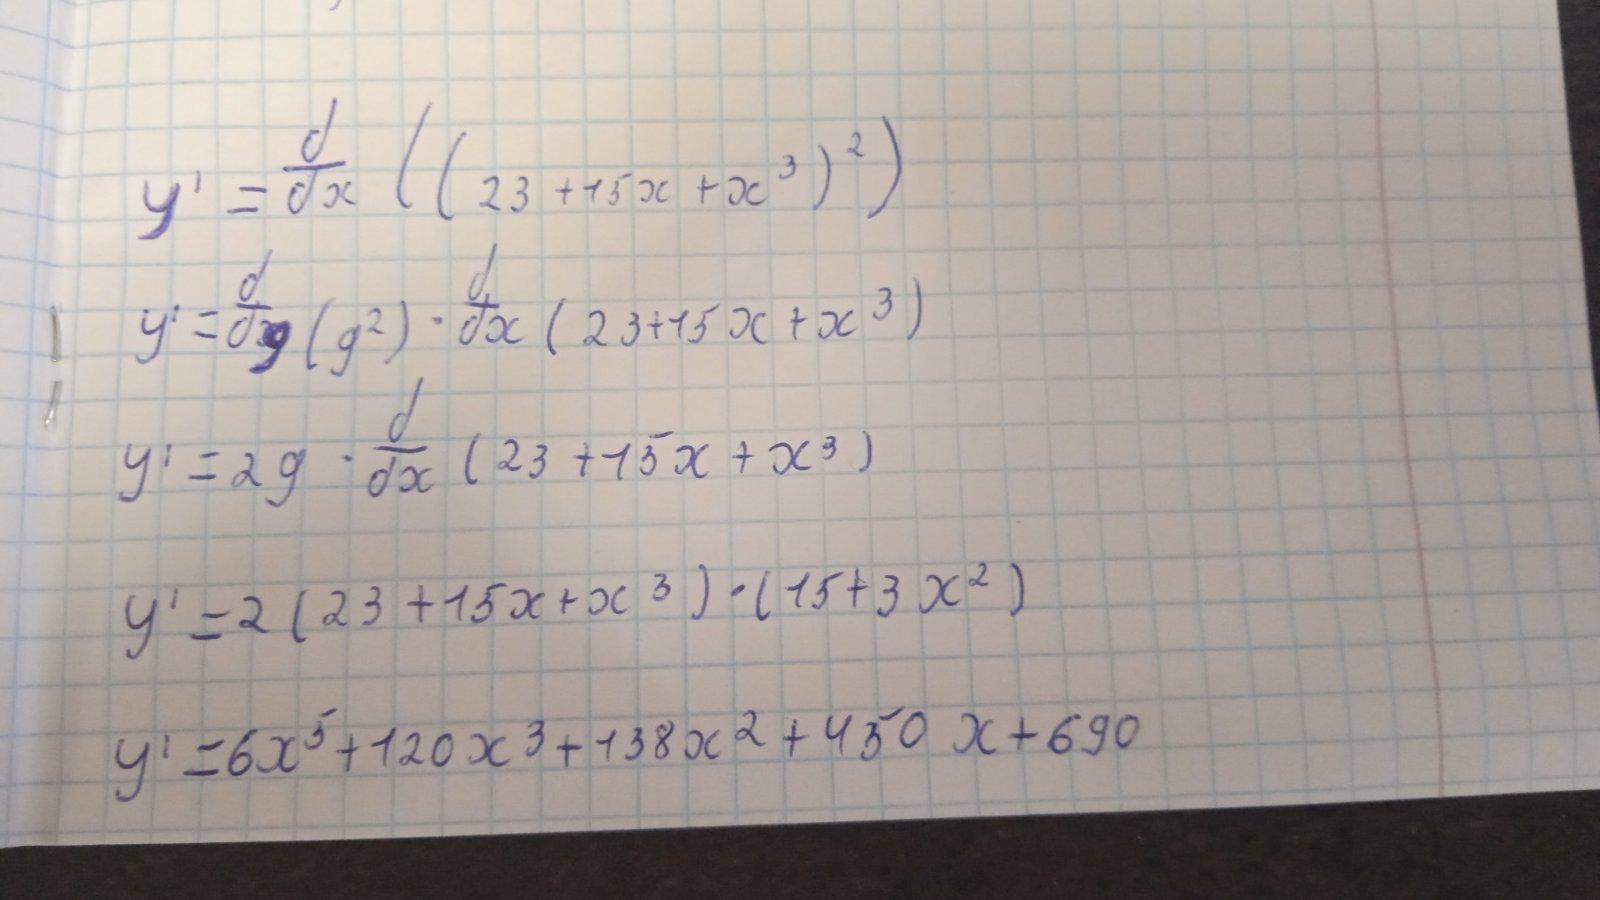 y' = d/dx ((23 + 15x + x³)²)
y' = d/dg (g²) · d/dx (23 + 15x + x³)
y' = 2g · d/dx (23 + 15x + x³)
y' = 2(23 + 15x + x³) · (15 + 3x²)
y' = 6x⁵ + 120x³ + 138x² + 450x + 690